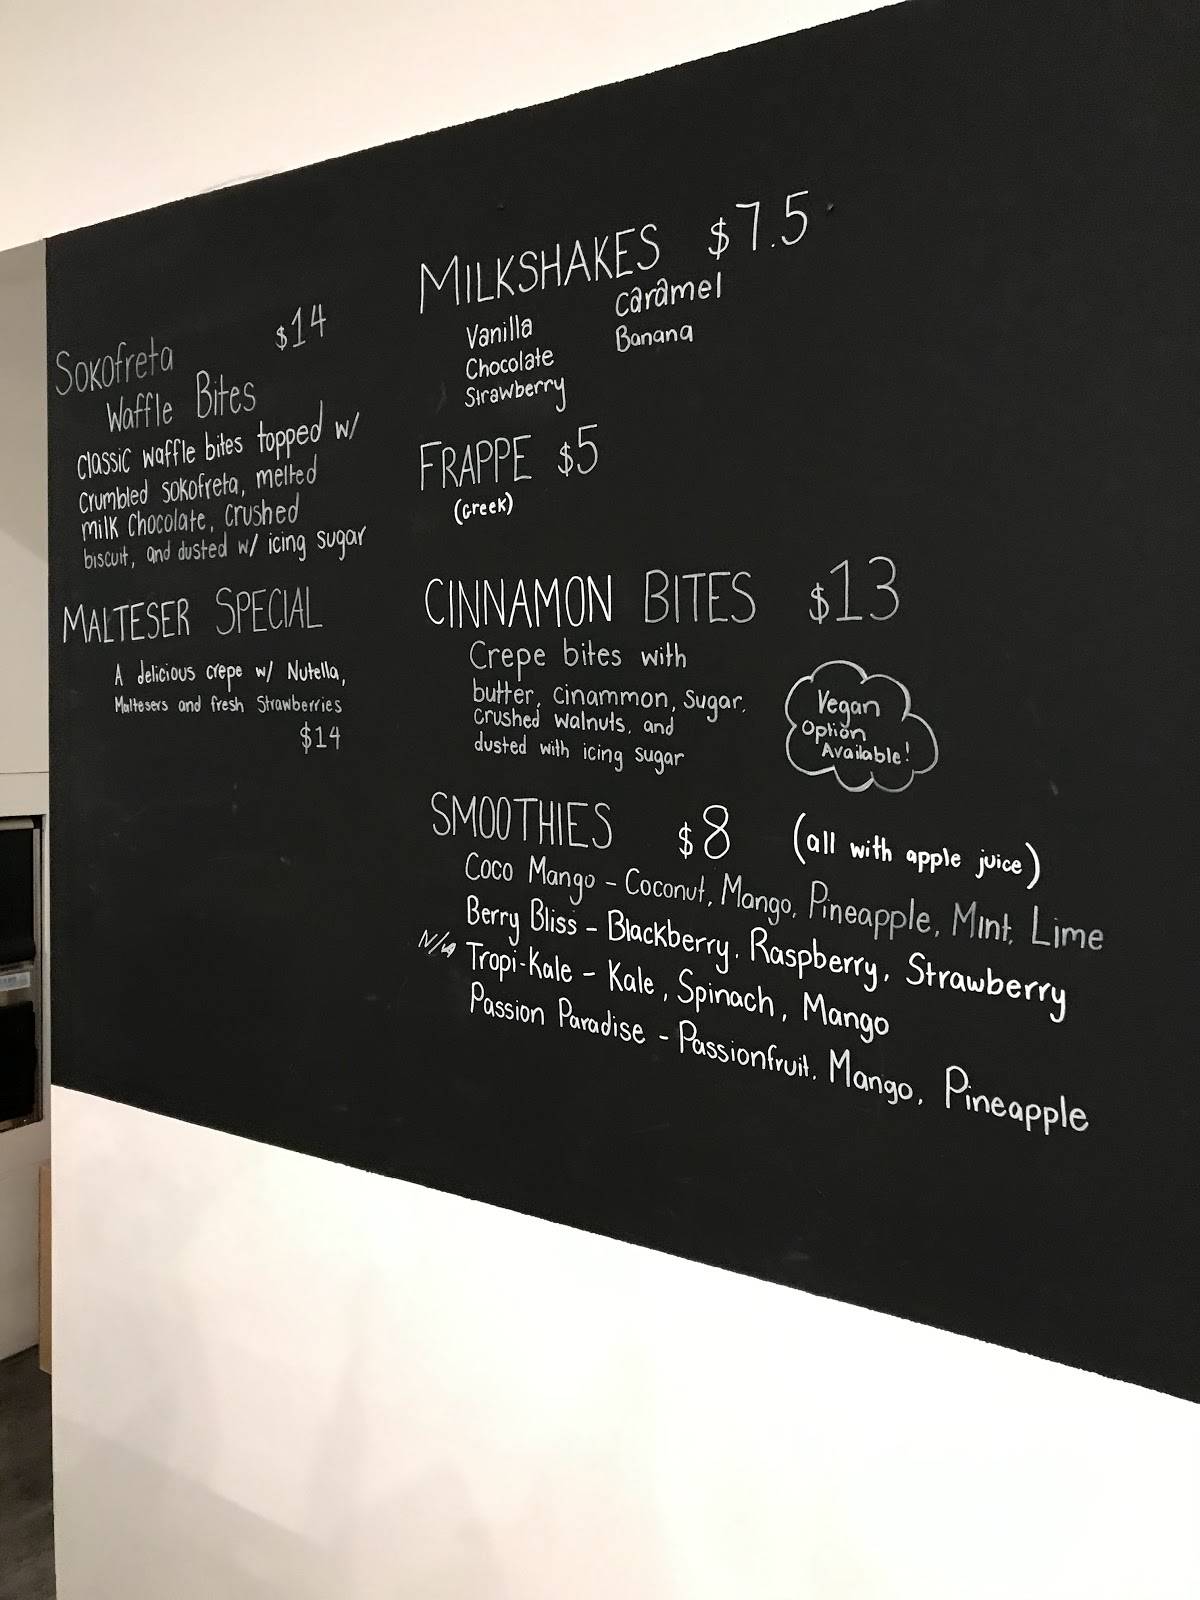 Sokofreta $14
Waffle Bites
Classic waffle bites topped w/
crumbled sokofreta, melted
milk chocolate, crushed
biscuit, and dusted w/ icing sugar
MALTESER SPECIAL
A delicious crepe w/ Nutella,
Maltesers and fresh Strawberries
$14
MILKSHAKES $7.5
Vanilla
Chocolate
Strawberry
Caramel
Banana
FRAPPE $5
(Greek)
CINNAMON BITES $13
Crepe bites with
butter, cinammon, sugar,
crushed walnuts, and
dusted with icing sugar
Vegan
Option
Available!
SMOOTHIES $8 (all with apple juice)
Coco Mango - Coconut, Mango, Pineapple, Mint, Lime
Berry Bliss - Blackberry, Raspberry, Strawberry
N/A Tropi-Kale - Kale, Spinach, Mango
Passion Paradise - Passionfruit, Mango, Pineapple